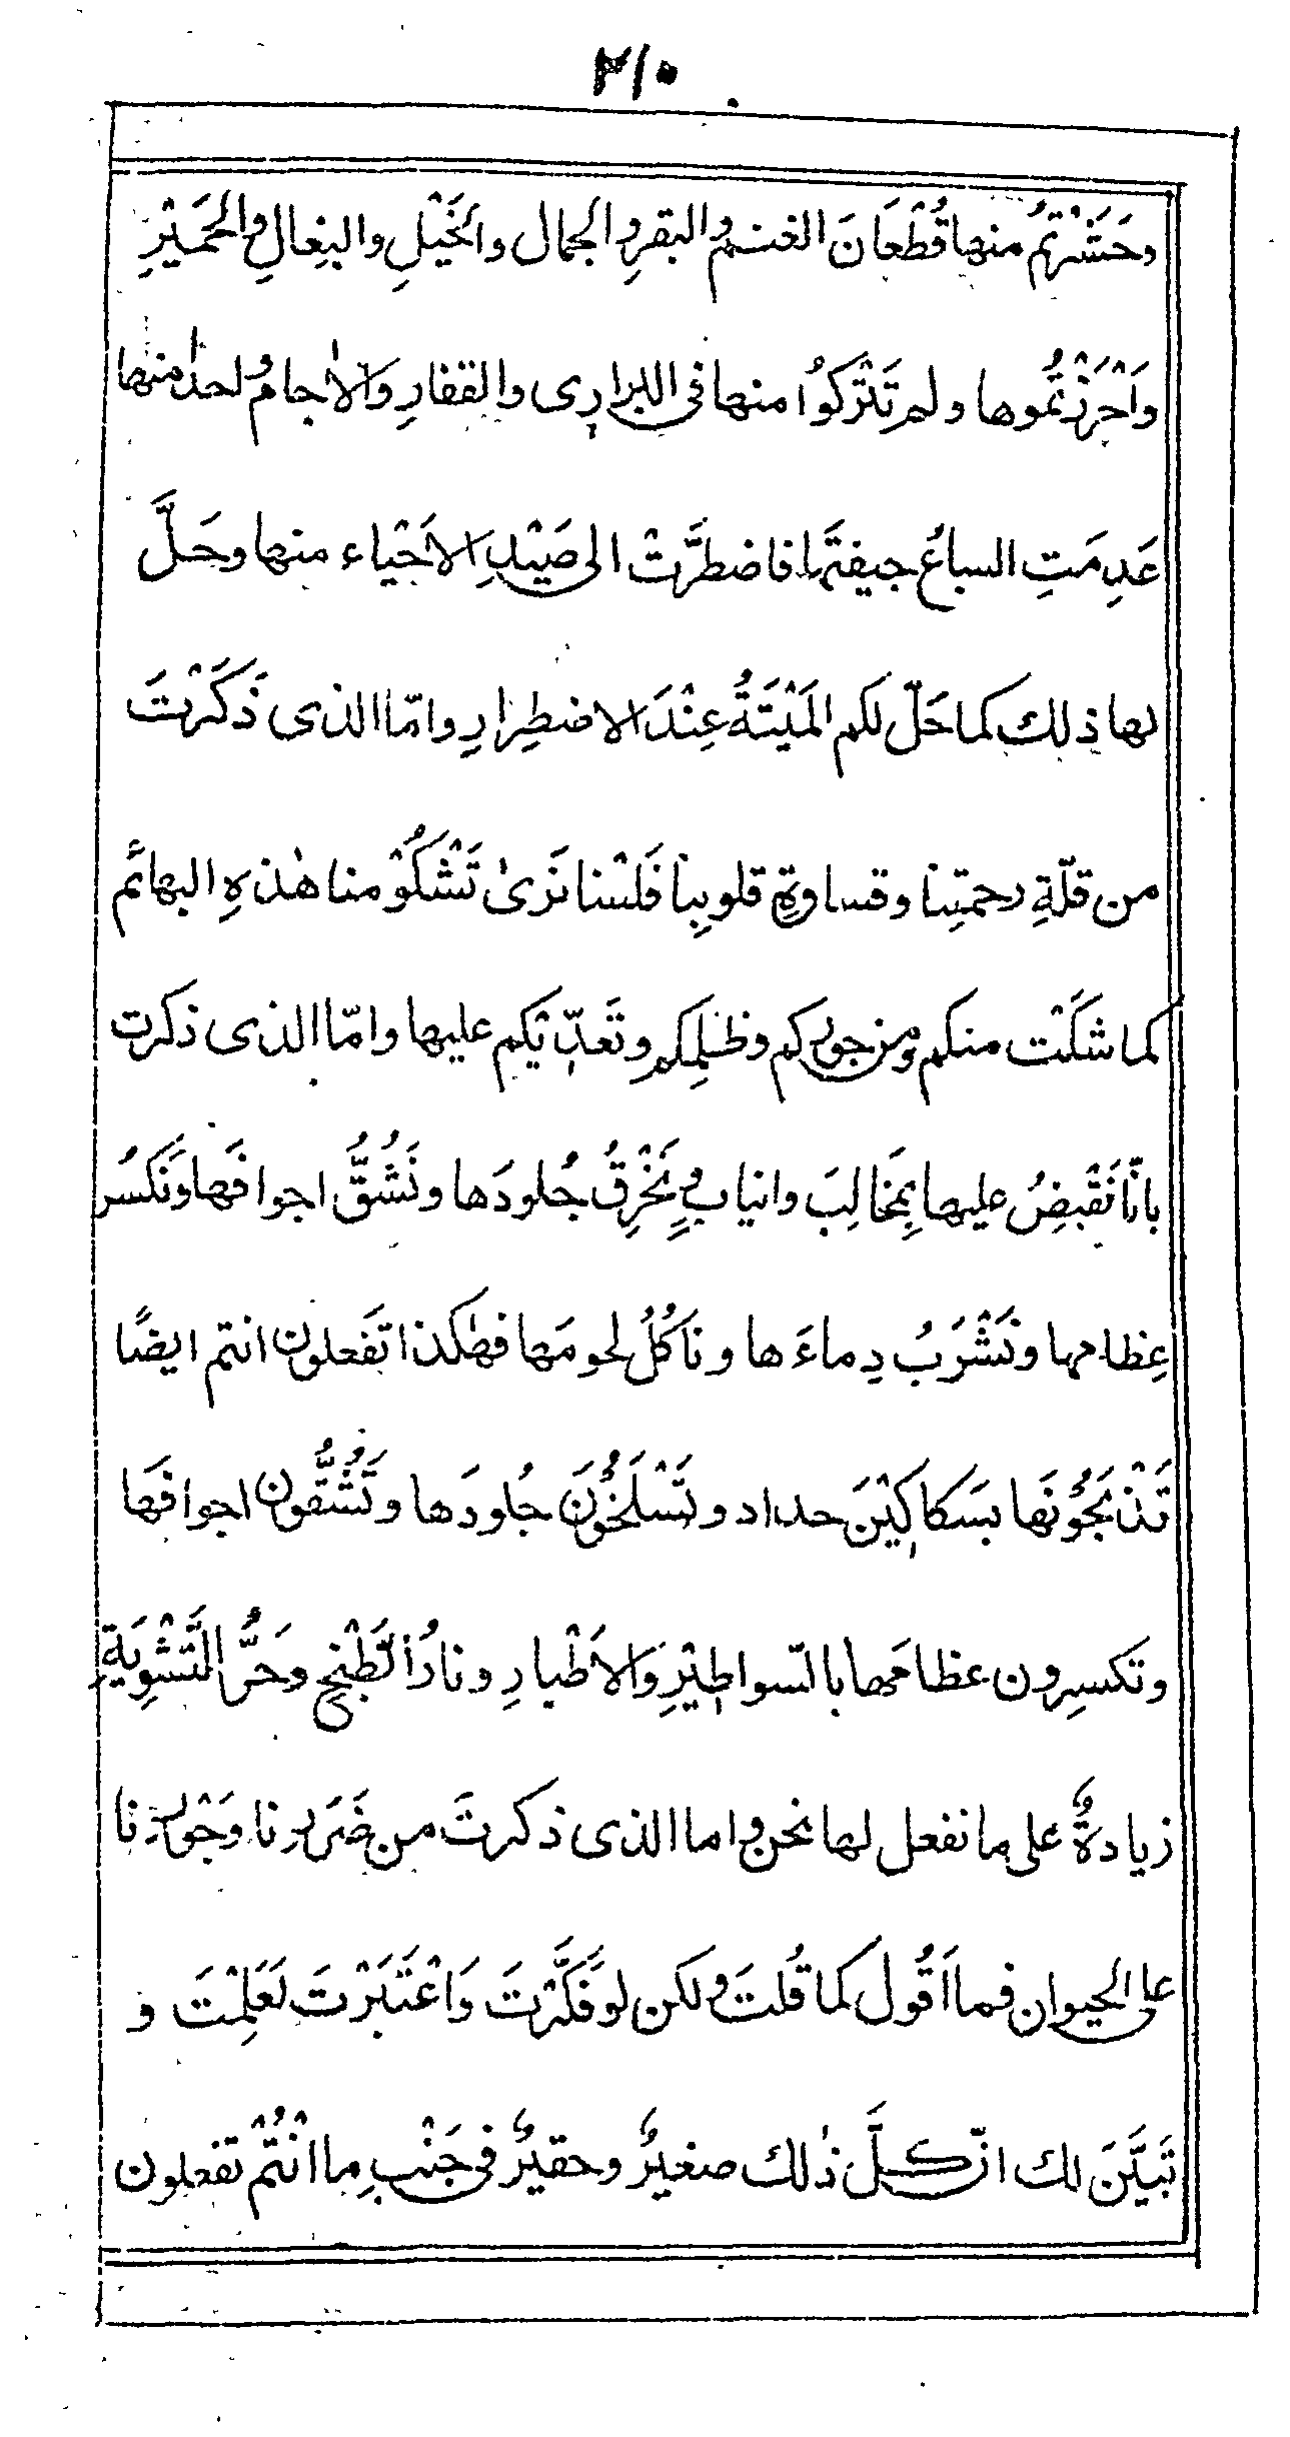 ٢١٠
وحَشَرْتُمْ منها قُطْعَانَ الغنمِ والبقرِ والجمال والخَيْلِ والبِغالِ والحَمِيْرِ
وَاَحْرَزْتُمُوها ولم تَتْرَكُوا منها فى البرارِى والقفارِ وَالاٰجامِ احدًا منها
عَدِمَتِ السباعُ جيفَتَها فاضطرَّتْ الى صَيْدِ الاَحْياء منها وحَلَّ
لها ذلك كما حَلّ لكم المَيْتَةُ عِنْدَ الاضطِرارِ وامّا الذى ذَكَرْتَ
من قلّةِ رحمتِنا وقساوةِ قلوبِنا فَلَسْنا نَرىٰ تَشْكُوْ منا هٰذهِ البهائم
كما شكَتْ منكم ومن جورِكم وظلمِكم وتَعدِّيْكم عليها وامّا الذى ذكرت
بانّا نَقْبِضُ عليها بِمَخالِبَ وانيابٍ ونَخْرِقُ جُلودَها ونَشُقُّ اجوافَها ونَكسُر
عِظامها ونَشْرَبُ دِماءَها ونَاكُلُ لحومَها فهٰكذا تَفعلون انتم ايضًا
تَذْبَحُوْنَها بسَكاكِيْنَ حداد وتَسْلَخُوْنَ جُلودَها وتَشُقُّون اجوافَها
وتكسِرون عظامَها بالسّواطِيْرِ وَالاَطْبارِ ونارُ الطَّبْخِ وحَرُّ التَّشْوِيَةِ
زيادةٌ على ما نفعل لها نحن واما الذى ذكرتَ من ضَرَرِنا وَجَوْرِنا
على الحيوان فما اَقُول كما قُلتَ ولكن لو فَكَّرْتَ وَاعْتَبَرْتَ لَعَلِمْتَ و
تَبَيَّنَ لك انّ كلَّ ذٰلك صغيرٌ وحقيرٌ فى جَنْبِ ما انْتُمْ تفعلون